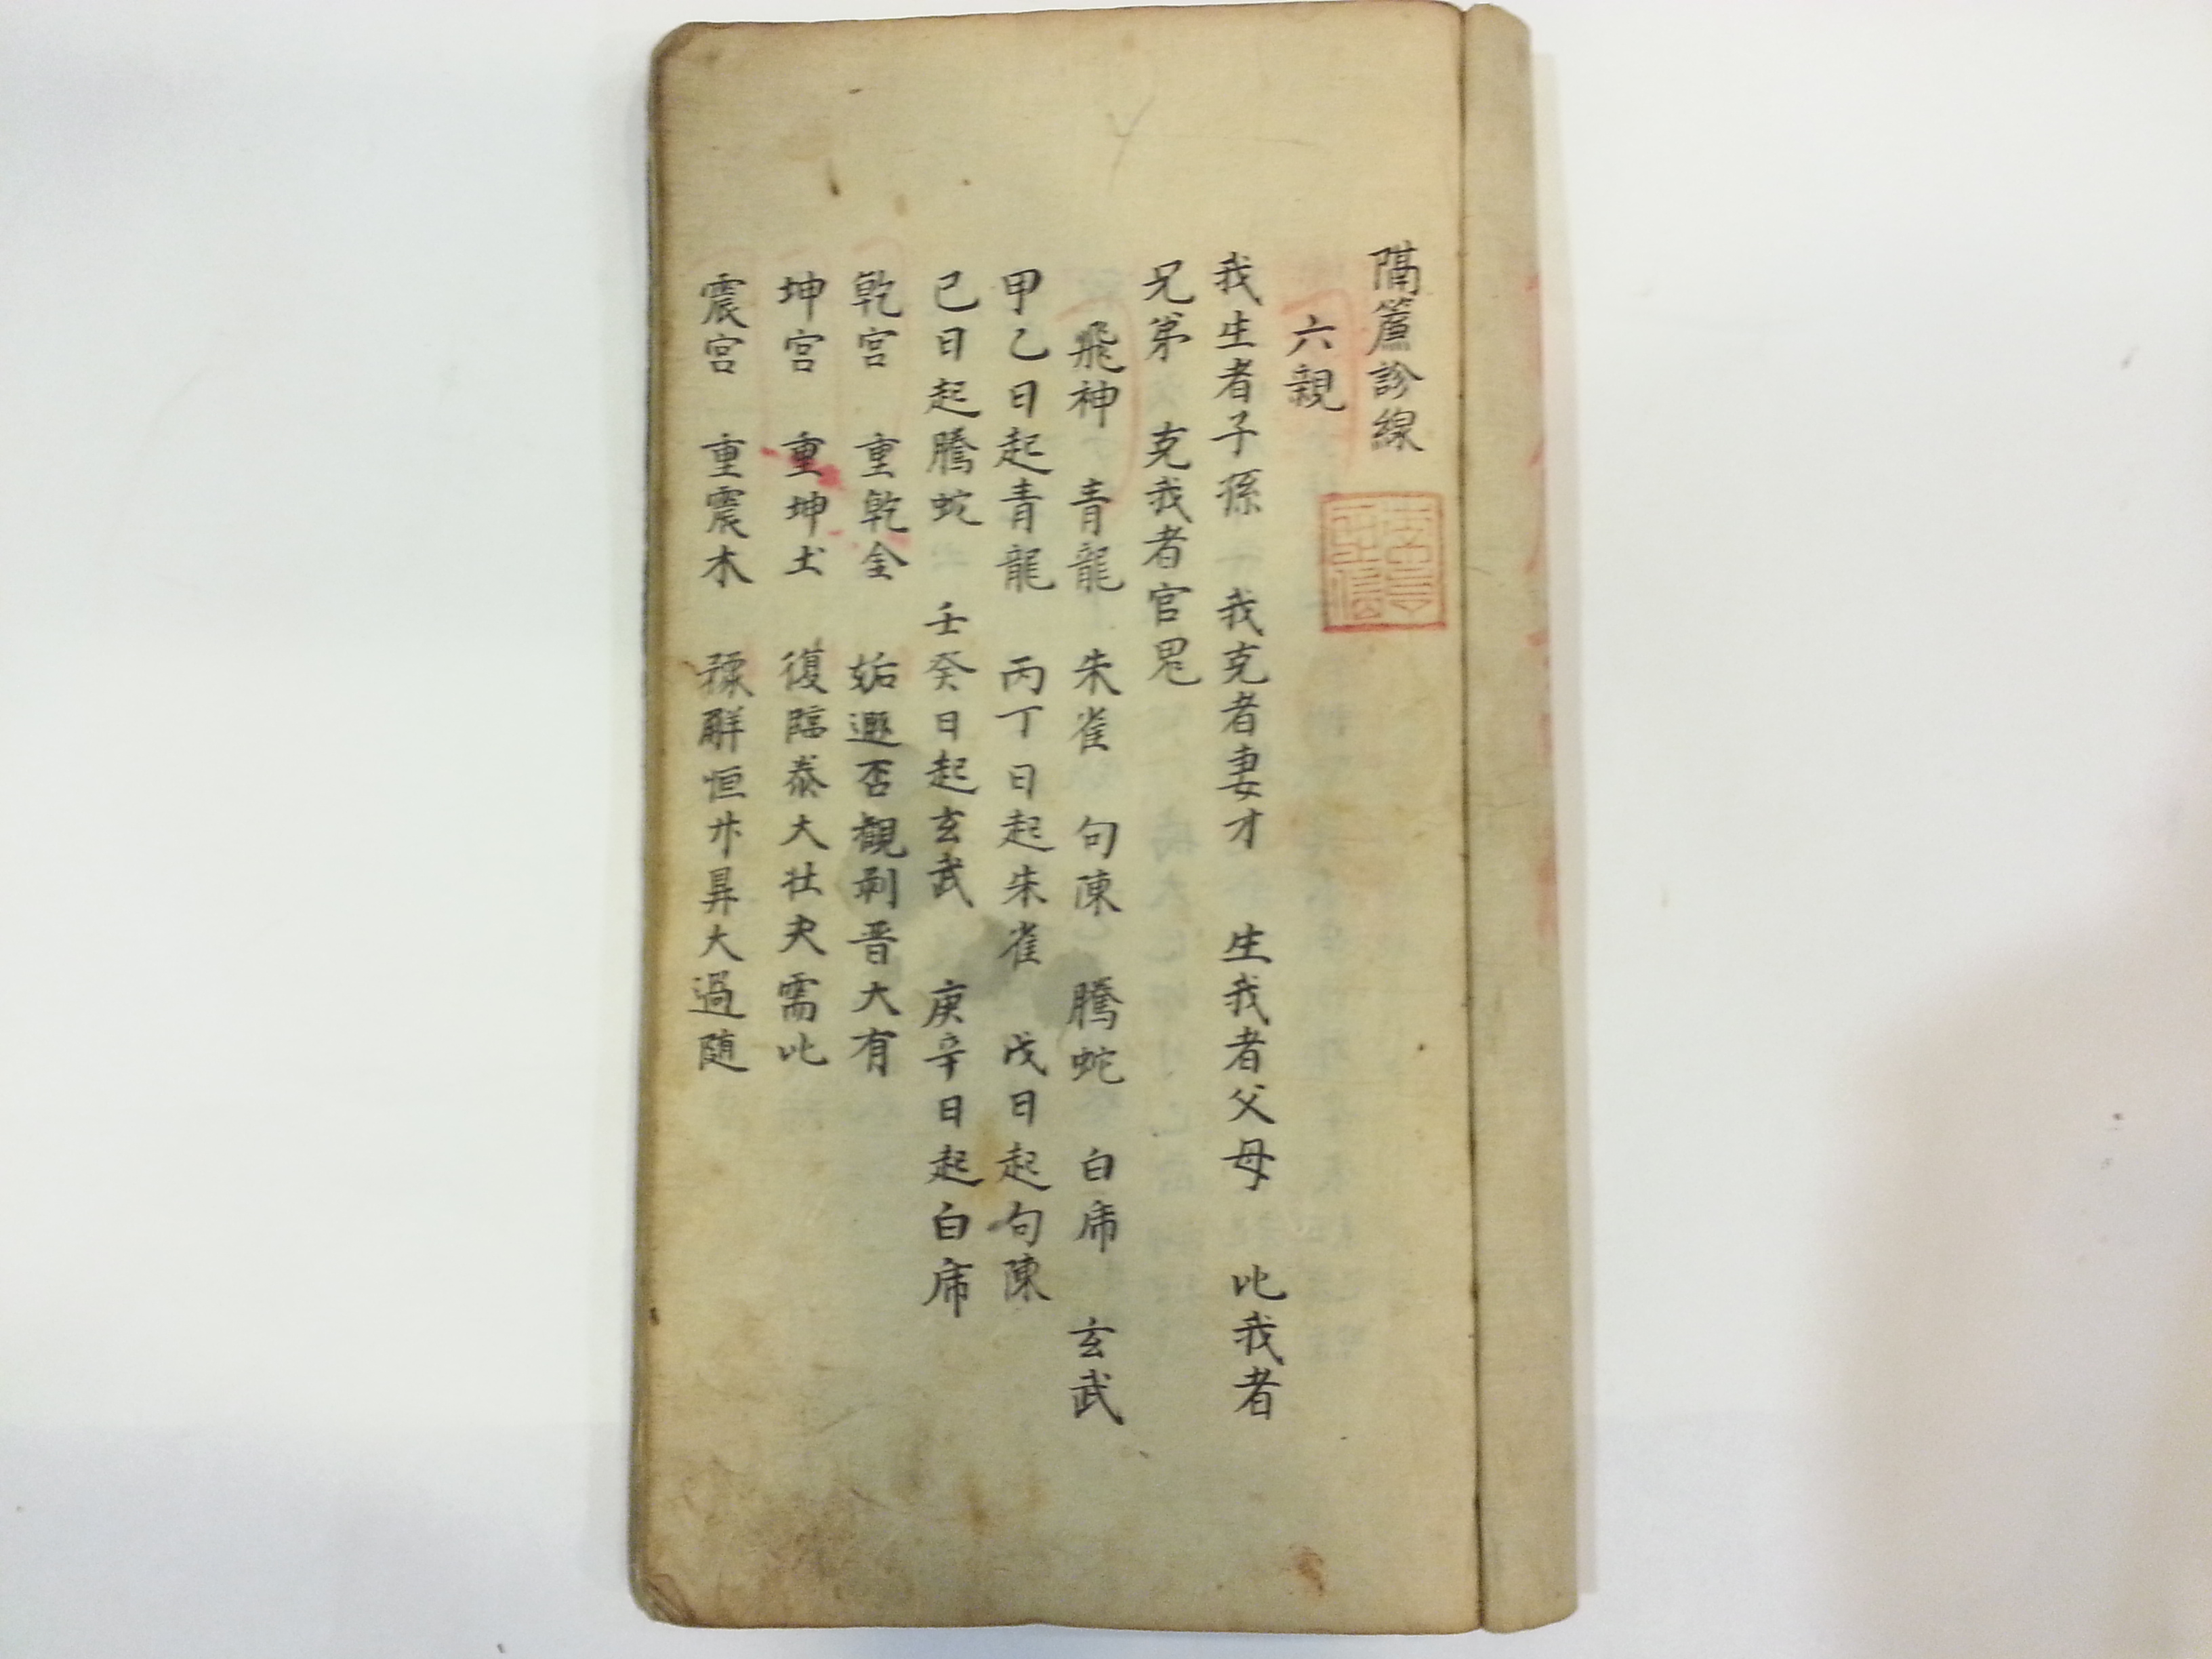 隔簾診線
六親
我生者子孫 我克者妻才 生我者父母 比我者
兄弟 克我者官鬼
飛神 青龍 朱雀 句陳 騰蛇 白虎 玄武
甲乙日起青龍 丙丁日起朱雀 戊日起句陳
己日起騰蛇 壬癸日起玄武 庚辛日起白虎
乾宮 重乾金 姤遯否觀剥晋大有
坤宮 重坤土 復臨泰大壮夬需比
震宮 重震木 豫解恒升昇大過随